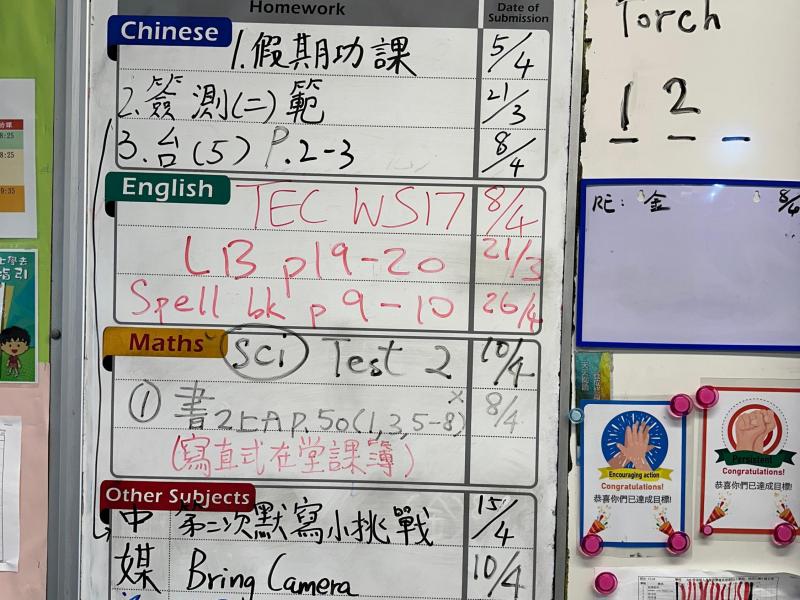 Homework
Date of Submission
Chinese
1.假期功課 5/4
2.簽測(二)範 21/3
3.台(5) P.2-3 8/4
English
TEC WS17 8/4
LB p19-20 21/3
Spell bk p 9-10 26/4
Maths
Sci Test 2 10/4
① 書2上A P.50(1,3,5-8) 8/4
(寫直式在堂課簿)
Other Subjects
中 第二次默寫小挑戰 15/4
媒 Bring Camera 10/4
Torch
1 2
RE: 金 8/4
8:25
8:25
9:35
上學去
指引
Encouraging action
Congratulations!
恭喜你們已達成目標!
Persistent
Congratulations!
恭喜你們已達成目標!